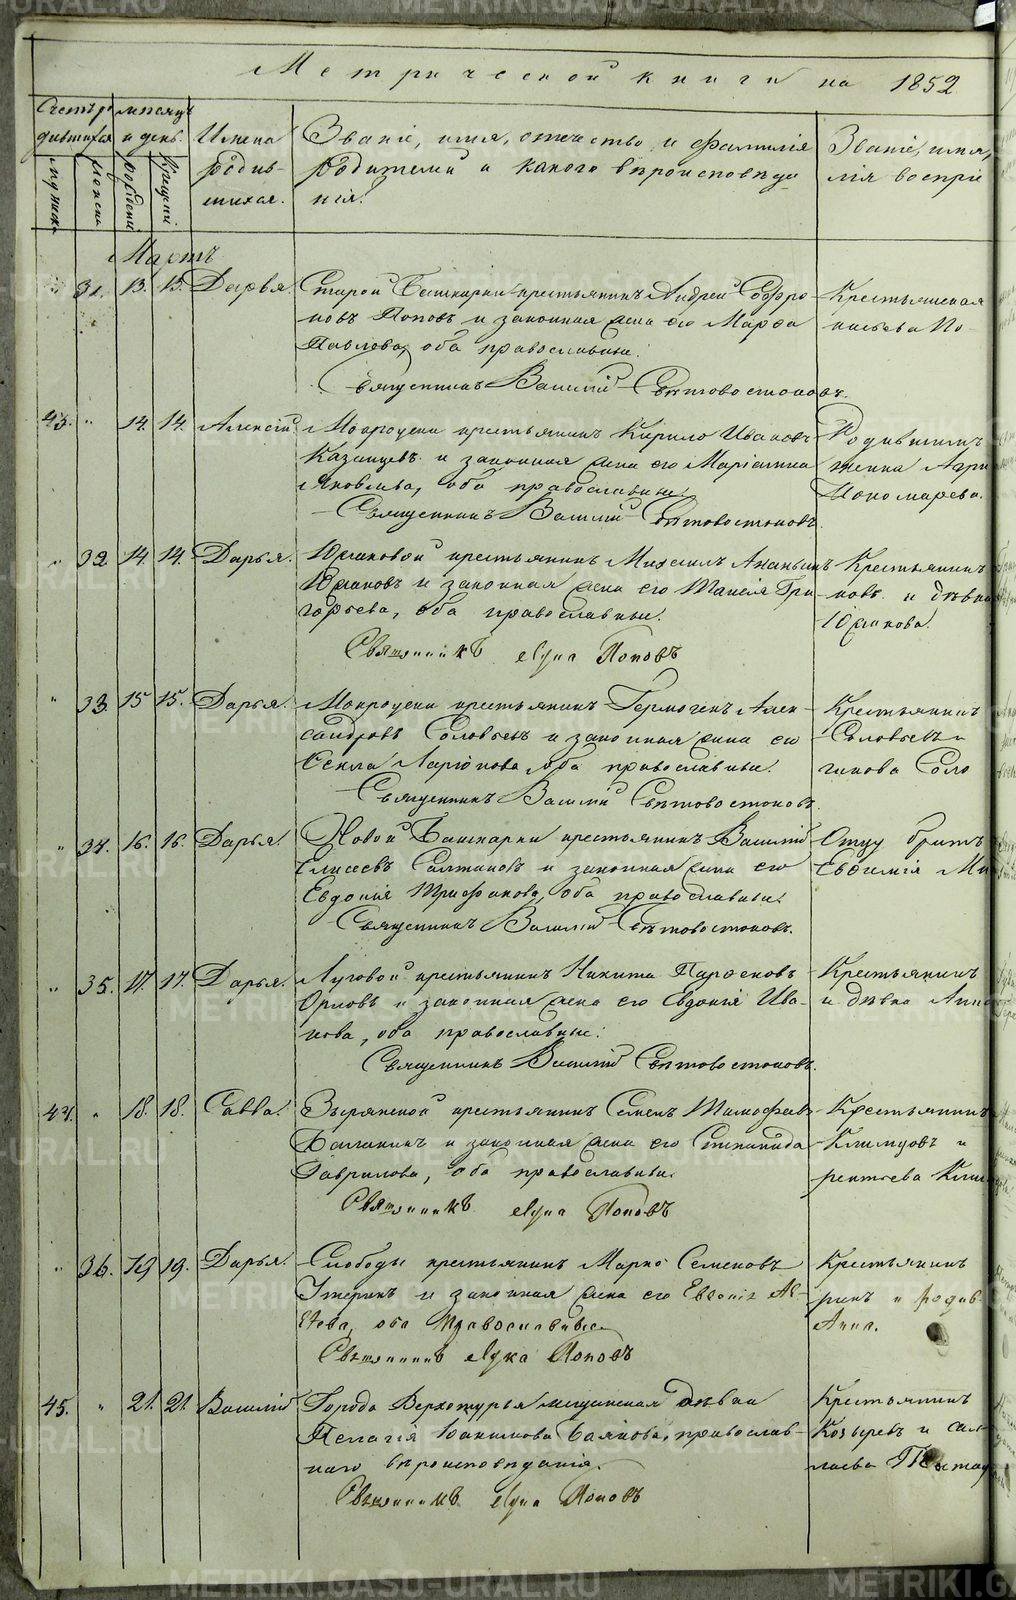 Метрической книги на 1852
Счетъ родившихся
Месяцъ и день
Имена родившихся.
Званіе, имя, отчество и фамилія родителей и какого вѣроисповѣданія.
Званіе, имя,
лія воспрі
мужеска
женска
рожденія
крещенія
Мартъ
" 31. 13. 13. Дарья.
Старой Башкарки крестьянинъ Андрей Софро-
новъ Поповъ и законная жена его Марфа
Павлова, оба православные.
Священникъ Василій Свѣтовостоковъ.
Крестьянская
43. " 14. 14. Алексій
Мокроуски крестьянинъ Кирило Ивановъ
Казанцевъ и законная жена его Маріамна
Яковлева, оба православные.
Священникъ Василій Свѣтовостоковъ.
Родившимъ
женка Агри
Пономарева.
" 32. 14. 14. Дарья.
Южаковой крестьянинъ Михаилъ Ананьинъ
Южаковъ и законная жена его Таисія Гри-
горьева, оба православные.
Священникъ Лука Поповъ
Крестьянинъ
ковъ и дѣвка
Южакова.
" 33. 15. 15. Дарья.
Мокроуски крестьянинъ Гермогенъ Алек-
сандровъ Соловьевъ и законная жена его
Фекла Ларіонова, оба православные.
Священникъ Василій Свѣтовостоковъ.
Крестьянинъ
Соловьевъ и
гинова Соло
" 34. 16. 16. Дарья.
Новой Башкарки крестьянинъ Василій
Елисеевъ Салтановъ и законная жена его
Евдокія Трифонова, оба православные.
Священникъ Василій Свѣтовостоковъ.
Отцу братъ
Евфимія Ми
" 35. 17. 17. Дарья.
Луговой крестьянинъ Никита Парфеновъ
Орловъ и законная жена его Евдокія Ива-
нова, оба православные.
Священникъ Василій Свѣтовостоковъ.
Крестьянинъ
и дѣвка Анна
44. " 18. 18. Савва.
Зырянской крестьянинъ Семенъ Тимофеевъ
Балакинъ и законная жена его Степанида
Гаврилова, оба православные.
Священникъ Лука Поповъ
Крестьянинъ
Климцовъ и
рентьева Клим
" 36. 19. 19. Дарья.
Слободы крестьянинъ Марко Семеновъ
и законная жена его Евдокія Ав-
оба православные.
Священникъ Лука Поповъ
Крестьянинъ
ринъ и родив
Анна.
45. " 21. 21. Василій
Города Верхотурья мещанская дѣвка
Пелагія Баянова, православ-
наго вѣроисповѣданія.
Священникъ Лука Поповъ
Крестьянинъ
Козыревъ и
METRIKI.GASO-URAL.RU